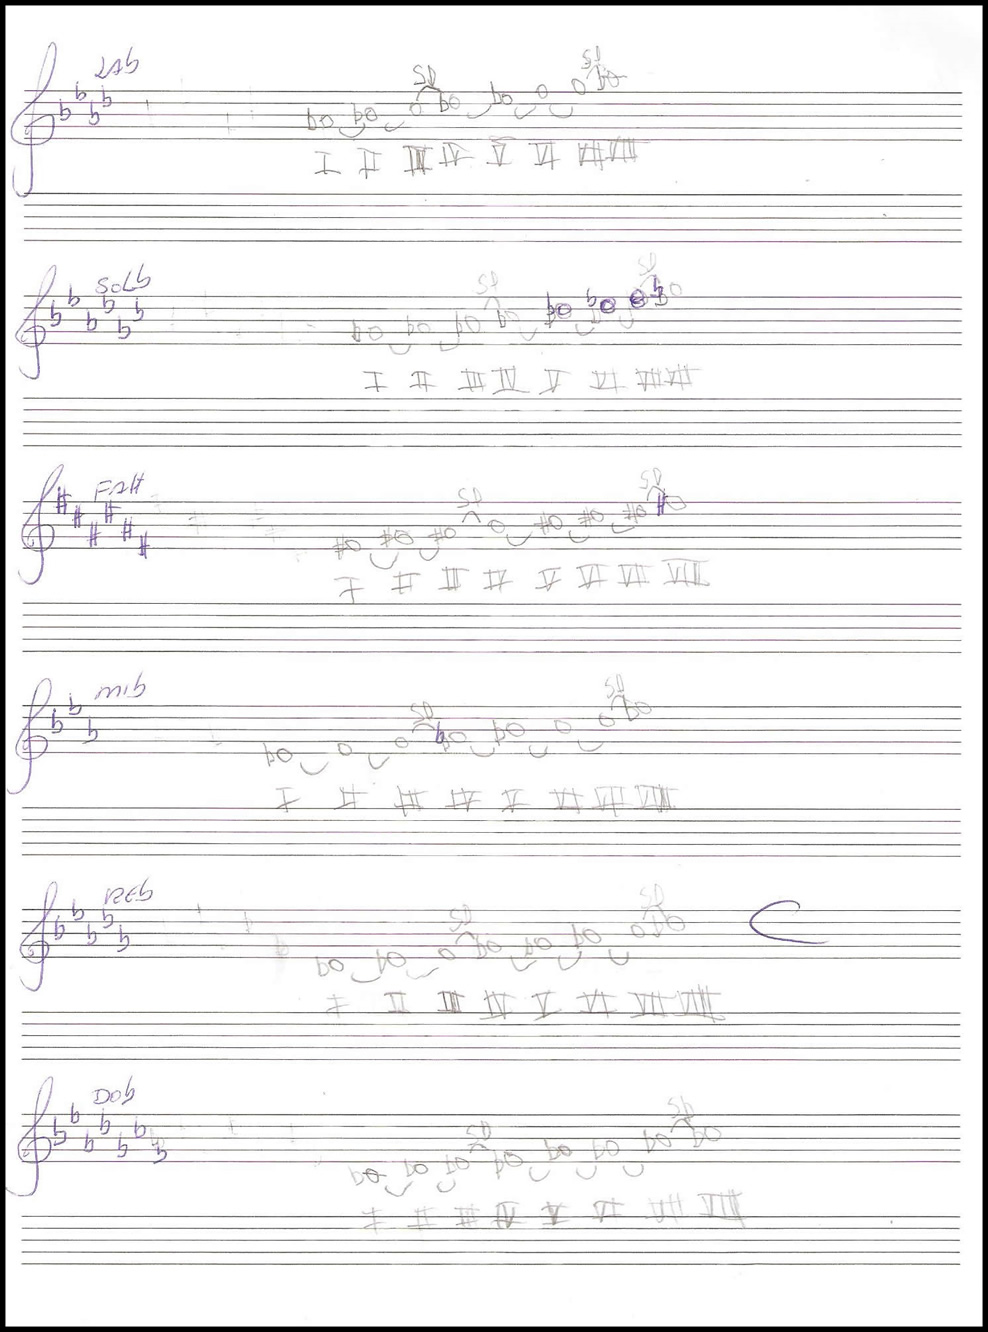 LAb
SD SD
I II III IV V VI VII VIII
SOLb
SD SD
I II III IV V VI VII VIII
FA#
SD SD
I II III IV V VI VII VIII
MIb
SD SD
I II III IV V VI VII VIII
REb
SD SD
I II III IV V VI VII VIII
DOb
SD SD
I II III IV V VI VII VIII